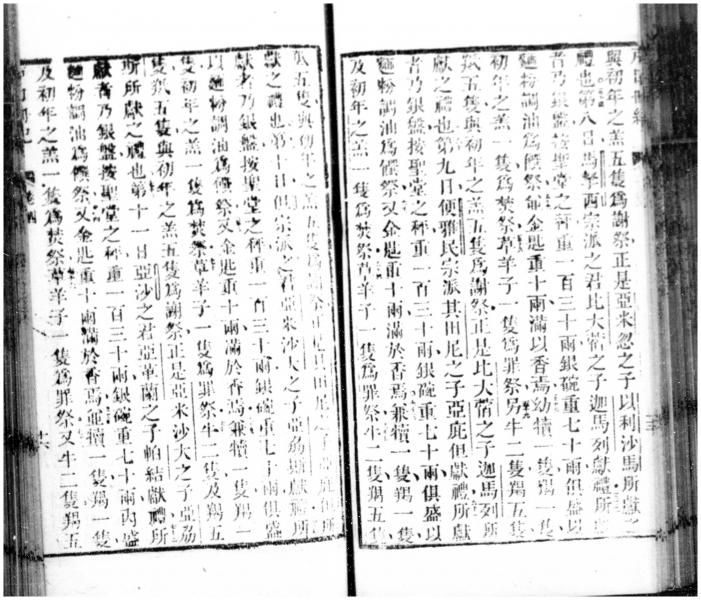 與初年之羔五隻爲謝祭正是亞米忽之子以利沙馬所獻之
禮也第八日馬拏西宗派之君比大蓿之子迦馬列獻禮所
者乃銀盤按聖堂之秤重一百三十兩銀碗重七十兩俱盛以
麵粉調油爲饌祭並金匙重十兩滿以香焉幼犢一隻羯一隻
初年之羔一隻爲焚祭草羊子一隻爲罪祭另牛二隻羯五隻
羝五隻與初年之羔五隻爲謝祭正是比大蓿之子迦馬列所
獻之禮也第九日便雅民宗派其田尼之子亞庇但獻禮所獻
者乃銀盤按聖堂之秤重一百三十兩銀碗重七十兩俱盛以
麵粉調油爲饌祭又金匙重十兩滿於香焉兼犢一隻羯一隻
及初年之羔一隻爲焚祭草羊子一隻爲罪祭牛二隻羯五隻
羝五隻與初年之羔五隻爲謝祭正是其田尼之子亞庇但所
獻之禮也第十日但宗派之君亞米沙大之子亞希獻禮所
獻者乃銀盤按聖堂之秤重一百三十兩銀碗重七十兩俱盛
以麵粉調油爲饌祭又金匙重十兩滿於香焉兼犢一隻羯一
隻初年之羔一隻爲焚祭草羊子一隻爲罪祭牛二隻及羯五
隻羝五隻與初年之羔五隻爲謝祭正是亞米沙大之子亞
所所獻之禮也第十一日亞沙之君亞革蘭之子帕結獻禮所
獻者乃銀盤按聖堂之秤重一百三十兩銀碗重七十兩內盛
麵粉調油爲饌祭又金匙重十兩滿於香焉並犢一隻羯一隻
及初年之羔一隻爲焚祭草羊子一隻爲罪祭又牛二隻羯五